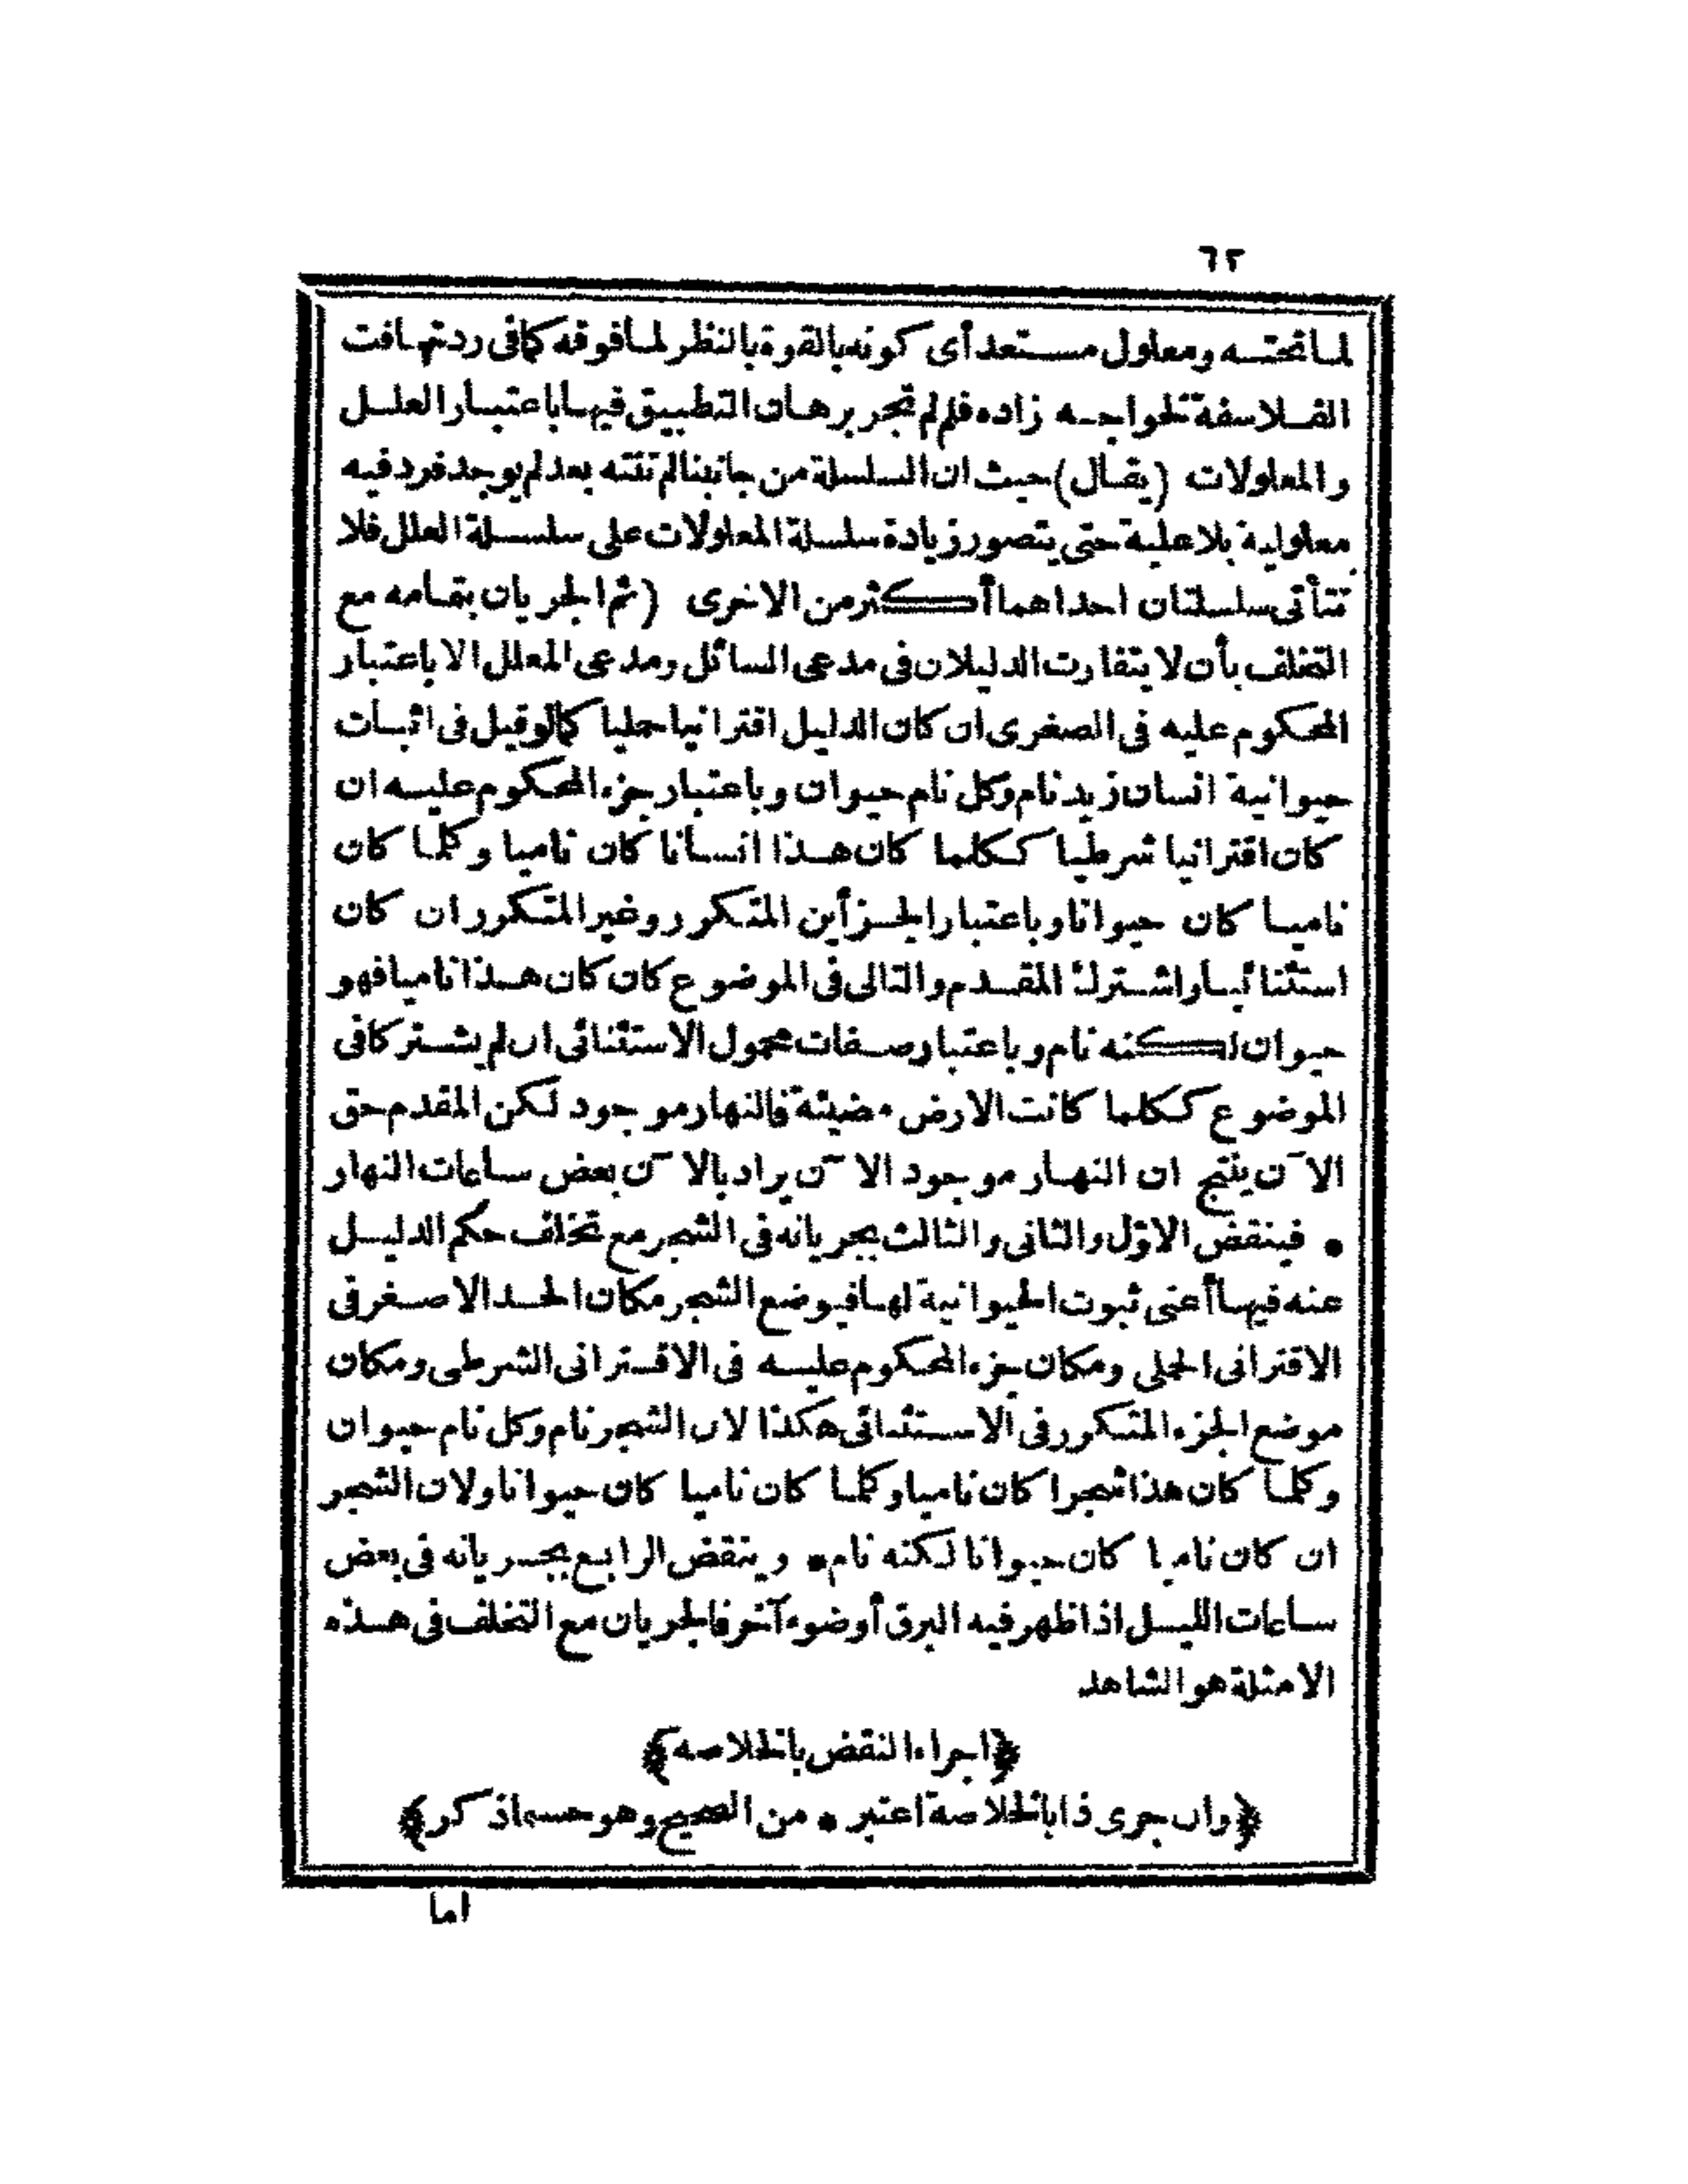 ٦٢
لما تحته ومعلول مستعد أى كونه بالقوة بالنظر لما فوقه كما فى رد تهافت
الفلاسفة لخواجه زاده فلم لم تجر برهان التطبيق فيها باعتبار العلل
والمعلولات (يقال) حيث ان السلسلة من جانبنا لم تنته بعد لم يوجد فرد فيه
معلولية بلا علية حتى يتصور زيادة سلسلة المعلولات على سلسلة العلل فلا
تتأتى سلسلتان احداهما أكثر من الاخرى (ثم الجريان بتمامه مع
التخلف بأن لا يتفاوت الدليلان فى مدعى السائل ومدعى المعلل الا باعتبار
المحكوم عليه فى الصغرى ان كان الدليل اقترانيا حمليا كما لو قيل فى اثبات
حيوانية انسان زيد نام وكل نام حيوان وباعتبار جزء المحكوم عليه ان
كان اقترانيا شرطيا ككلما كان هذا انسانا كان ناميا وكلما كان
ناميا كان حيوانا وباعتبار الجزأين المتكرر وغير المتكرر ان كان
استثنائيا واشترك المقدم والتالى فى الموضوع كان كان هذا ناميا فهو
حيوان لكنه نام وباعتبار صفات محمول الاستثنائى ان لم يشتركا فى
الموضوع ككلما كانت الارض مضيئة فالنهار موجود لكن المقدم حق
الآن ينتج ان النهار موجود الآن يراد بالآن بعض ساعات النهار
• فينقض الاوّل والثانى والثالث بجريانه فى الشجر مع تخلف حكم الدليل
عنه فيها أعنى ثبوت الحيوانية لها فيوضع الشجر مكان الحد الاصغر فى
الاقترانى الحملى ومكان جزء المحكوم عليه فى الاقترانى الشرطى ومكان
موضع الجزء المتكرر فى الاستثنائى هكذا لان الشجر نام وكل نام حيوان
وكلما كان هذا شجرا كان ناميا وكلما كان ناميا كان حيوانا ولان الشجر
ان كان ناميا كان حيوانا لكنه نام • وينقض الرابع بجريانه فى بعض
ساعات الليل اذا ظهر فيه البرق أو ضوء آخر فالجريان مع التخلف فى هذه
الامثلة هو الشاهد
﴿اجراء النقض بالخلاصه﴾
﴿وان جرى ذا بالخلاصة اعتبر • من الصحيح وهو حسبما ذكر﴾
اما